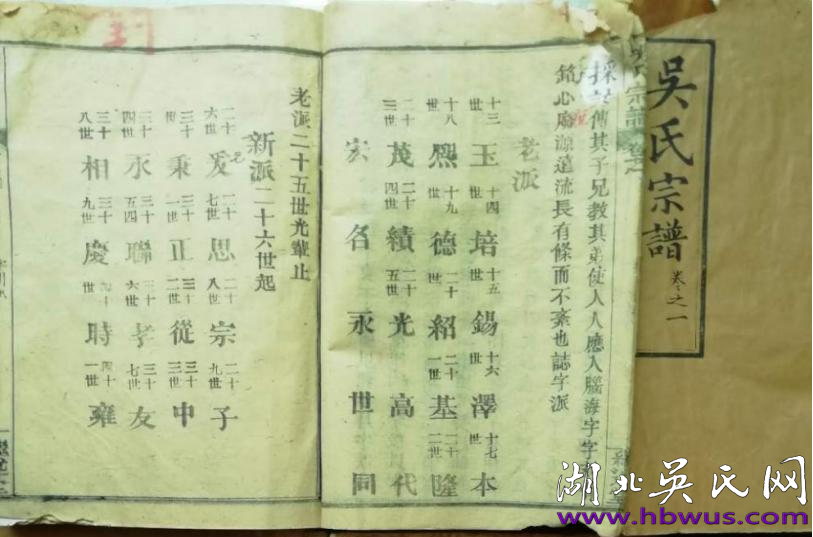 吳氏宗譜 卷之一
傳其子兄教其弟使人人應入腦海字字
銘心庶源遠流長有條而不紊也誌字派
老派
十三世 玉 十四世 培 十五世 錫 十六世 澤 十七世 本
十八世 熈 十九世 德 二十世 紹 二十一世 基 二十二世 隆
二十三世 茂 二十四世 績 二十五世 光 高 代
宏 名 永 世 同
老派二十五世光輩止
新派二十六世起
二十六世 二十七世 思 二十八世 宗 二十九世 子
三十世 秉 三十一世 正 三十二世 從 三十三世 中
三十四世 永 三十五世 聯 三十六世 孝 三十七世 友
三十八世 相 三十九世 慶 四十世 時 四十一世 雍
湖北吴氏网
www.hbwus.com